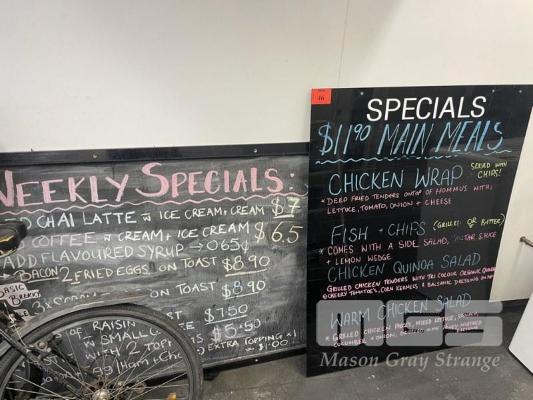 WEEKLY SPECIALS:
CHAI LATTE w ICE CREAM + CREAM $7
COFFEE w ICE CREAM + CREAM $6.5
ADD FLAVOURED SYRUP → 065¢
BACON 2 FRIED EGGS ON TOAST $8.90
BASIC
ON TOAST $8.90
3x
$7.50
OF RAISIN TOAST
w SMALL $5.50
WITH 2 TOPPI
EXTRA TOPPING x1
= $1.00
egg/Ham + Che
16
SPECIALS
$11.90 MAIN MEALS
SERVED WITH
CHIPS!
CHICKEN WRAP
* DEEP FRIED TENDERS ONTOP OF HOMMUS WITH:
LETTUCE, TOMATO, ONION + CHEESE
FISH + CHIPS (GRILLED OR BATTER)
* COMES WITH A SIDE SALAD, TARTAR SAUCE
+ LEMON WEDGE
CHICKEN QUINOA SALAD
GRILLED CHICKEN TENDERS WITH TRI COLOUR ORGANIC QUINOA
CHERRY TOMATOES, CORN KERNELS & BALSAMIC DRESSING ON
WARM CHICKEN SALAD
* GRILLED CHICKEN PIECES, MIXED LETTUCE,
CUCUMBER + ONION
Mason Gray Strange